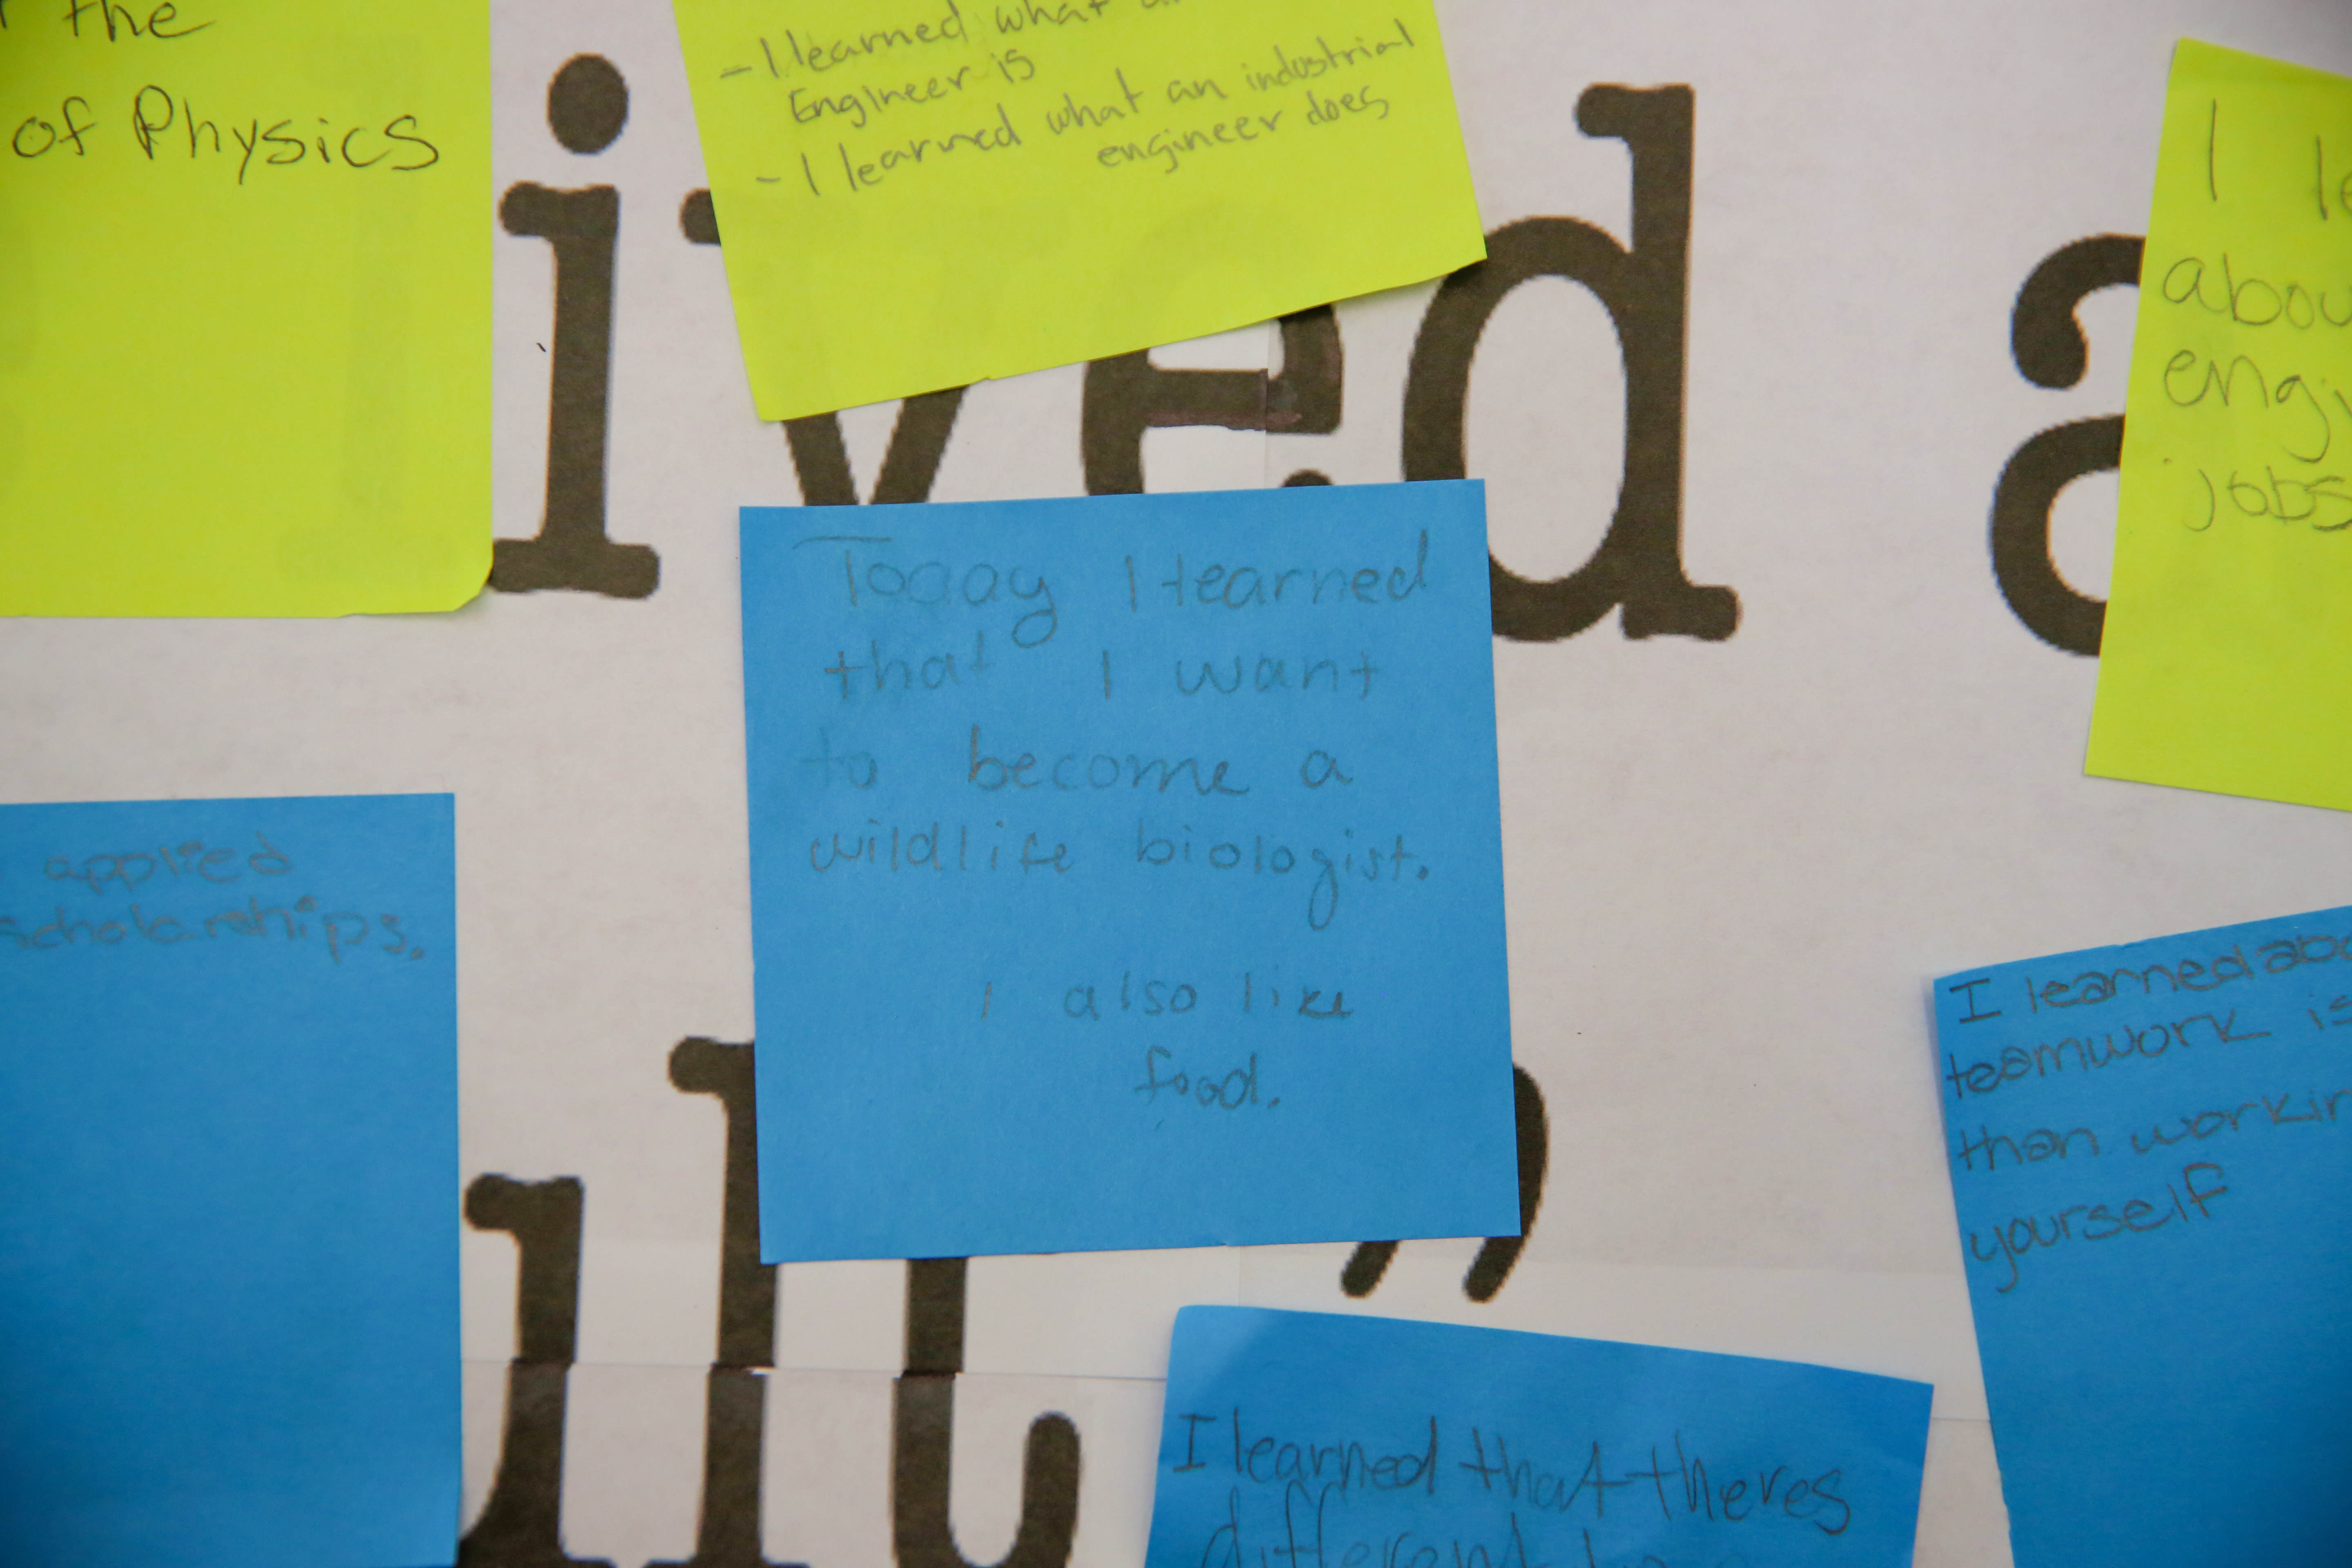 the
of Physics
- I learned what
Engineer is
- I learned what an industrial
engineer does
I
abou
engi
jobs
ived a
Today I learned
that I want
to become a
wildlife biologist.
I also like
food.
applied
scholarships.
I learned abo
teamwork is
than workin
yourself
”
I learned that theres
different